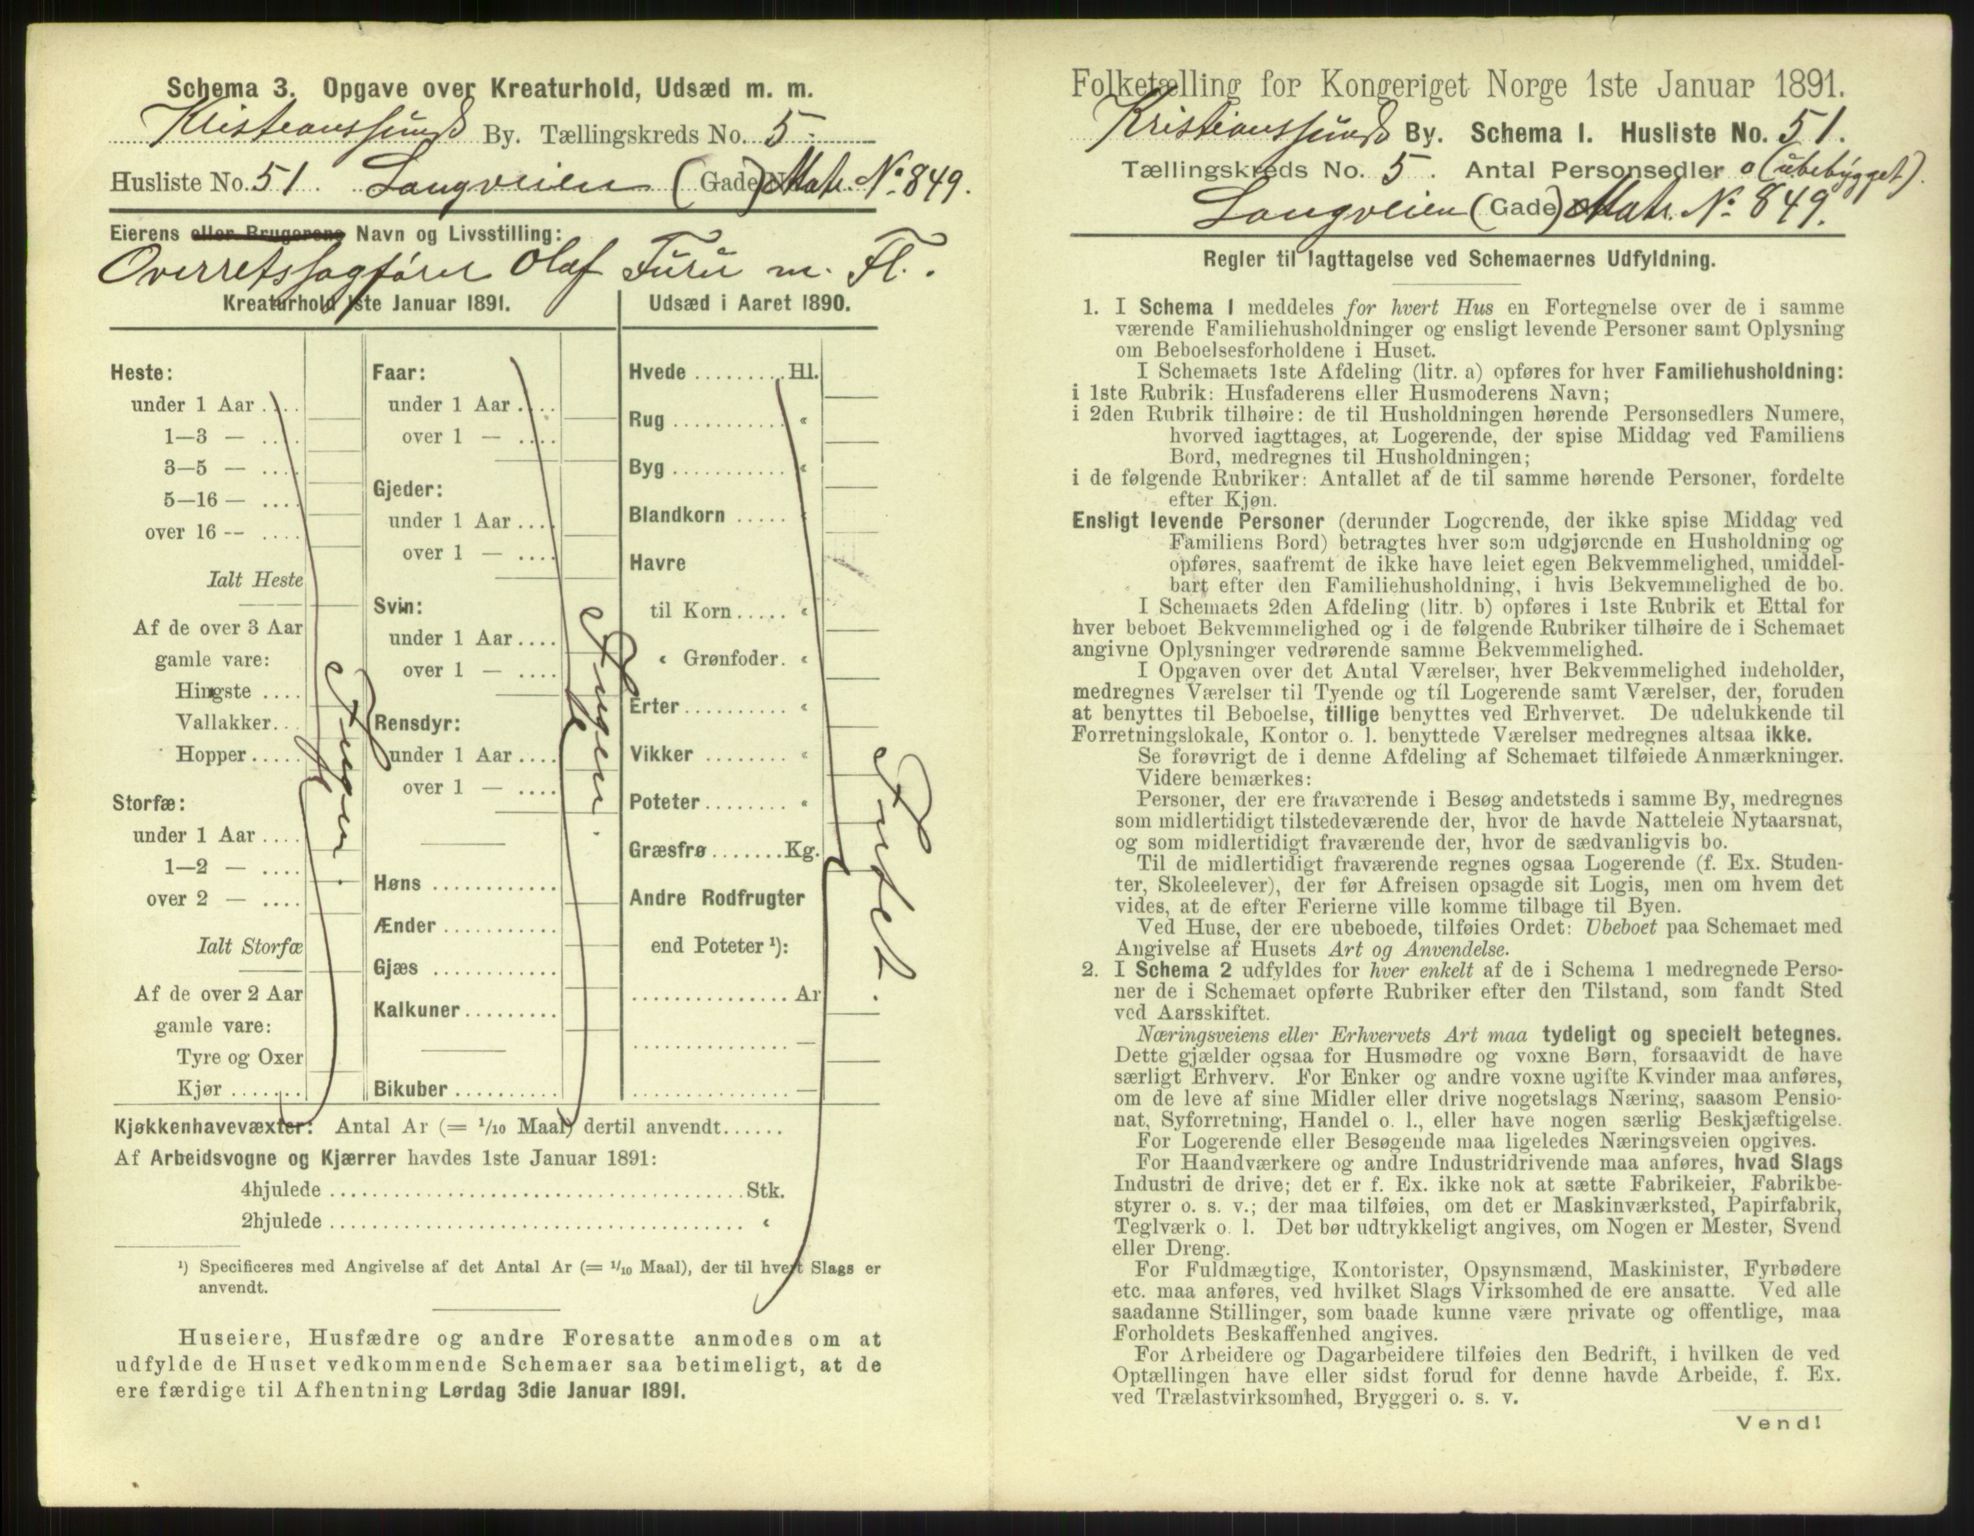 Schema 3. Opgave over Kreaturhold, Udsæd m. m.
Kristianssunds By. Tællingskreds No. 5.
Husliste No. 51. Langveien (Gade) Matr. No. 849.
Eierens eller Brugerens Navn og Livsstilling:
Overretssagfører Olaf Furu m. Fl.
Kreaturhold 1ste Januar 1891.
Heste:
under 1 Aar ....
1—3 — ....
3—5 — ....
5—16 — ....
over 16 -- ....
Ialt Heste
Af de over 3 Aar
gamle vare:
Hingste ....
Vallakker...
Hopper .....
Storfæ:
under 1 Aar ....
1—2 — ....
over 2 — ....
Ialt Storfæ
Af de over 2 Aar
gamle vare:
Tyre og Oxer
Kjør .......
Ingen.
Faar:
under 1 Aar ....
over 1 — ....
Gjeder:
under 1 Aar ....
over 1 — ....
Svin:
under 1 Aar ....
over 1 — ....
Rensdyr:
under 1 Aar ....
over 1 — ....
Høns ............
Ænder ...........
Gjæs ............
Kalkuner.........
Bikuber ..........
Ingen.
Udsæd i Aaret 1890.
Hvede ........Hl.
Rug .......... «
Byg .......... «
Blandkorn ..... «
Havre
til Korn ..... «
« Grønfoder. «
Erter ......... «
Vikker ........ «
Poteter ........ «
Græsfrø .......Kg.
Andre Rodfrugter
end Poteter ¹):
............... Ar
............... —
............... —
Intet.
Kjøkkenhavevæxter: Antal Ar (= 1/10 Maal) dertil anvendt......
Af Arbeidsvogne og Kjærrer havdes 1ste Januar 1891:
4hjulede ........................................Stk.
2hjulede ........................................ «
¹) Specificeres med Angivelse af det Antal Ar (= 1/10 Maal), der til hvert Slags er
anvendt.
Huseiere, Husfædre og andre Foresatte anmodes om at
udfylde de Huset vedkommende Schemaer saa betimeligt, at de
ere færdige til Afhentning Lørdag 3die Januar 1891.
Folketælling for Kongeriget Norge 1ste Januar 1891.
Kristianssunds By. Schema 1. Husliste No. 51.
Tællingskreds No. 5. Antal Personsedler 0 (ubebygget).
Langveien (Gade) Matr. No. 849.
Regler til Iagttagelse ved Schemaernes Udfyldning.
1. I Schema 1 meddeles for hvert Hus en Fortegnelse over de i samme
værende Familiehusholdninger og ensligt levende Personer samt Oplysning
om Beboelsesforholdene i Huset.
I Schemaets 1ste Afdeling (litr. a) opføres for hver Familiehusholdning:
i 1ste Rubrik: Husfaderens eller Husmoderens Navn;
i 2den Rubrik tilhøire: de til Husholdningen hørende Personsedlers Numere,
hvorved iagttages, at Logerende, der spise Middag ved Familiens
Bord, medregnes til Husholdningen;
i de følgende Rubriker: Antallet af de til samme hørende Personer, fordelte
efter Kjøn.
Ensligt levende Personer (derunder Logerende, der ikke spise Middag ved
Familiens Bord) betragtes hver som udgjørende en Husholdning og
opføres, saafremt de ikke have leiet egen Bekvemmelighed, umiddel-
bart efter den Familiehusholdning, i hvis Bekvemmelighed de bo.
I Schemaets 2den Afdeling (litr. b) opføres i 1ste Rubrik et Ettal for
hver beboet Bekvemmelighed og i de følgende Rubriker tilhøire de i Schemaet
angivne Oplysninger vedrørende samme Bekvemmelighed.
I Opgaven over det Antal Værelser, hver Bekvemmelighed indeholder,
medregnes Værelser til Tyende og til Logerende samt Værelser, der, foruden
at benyttes til Beboelse, tillige benyttes ved Erhvervet. De udelukkende til
Forretningslokale, Kontor o. l. benyttede Værelser medregnes altsaa ikke.
Se forøvrigt de i denne Afdeling af Schemaet tilføiede Anmærkninger.
Videre bemærkes:
Personer, der ere fraværende i Besøg andetsteds i samme By, medregnes
som midlertidigt tilstedeværende der, hvor de havde Natteleie Nytaarsnat,
og som midlertidigt fraværende der, hvor de sædvanligvis bo.
Til de midlertidigt fraværende regnes ogsaa Logerende (f. Ex. Studen-
ter, Skoleelever), der før Afreisen opsagde sit Logis, men om hvem det
vides, at de efter Ferierne ville komme tilbage til Byen.
Ved Huse, der ere ubeboede, tilføies Ordet: Ubeboet paa Schemaet med
Angivelse af Husets Art og Anvendelse.
2. I Schema 2 udfyldes for hver enkelt af de i Schema 1 medregnede Perso-
ner de i Schemaet opførte Rubriker efter den Tilstand, som fandt Sted
ved Aarsskiftet.
Næringsveiens eller Erhvervets Art maa tydeligt og specielt betegnes.
Dette gjælder ogsaa for Husmødre og voxne Børn, forsaavidt de have
særligt Erhverv. For Enker og andre voxne ugifte Kvinder maa anføres,
om de leve af sine Midler eller drive nogetslags Næring, saasom Pensio-
nat, Syforretning, Handel o. l., eller have nogen særlig Beskjæftigelse.
For Logerende eller Besøgende maa ligeledes Næringsveien opgives.
For Haandværkere og andre Industridrivende maa anføres, hvad Slags
Industri de drive; det er f. Ex. ikke nok at sætte Fabrikeier, Fabrikbe-
styrer o. s. v.; der maa tilføies, om det er Maskinværksted, Papirfabrik,
Teglværk o. l. Det bør udtrykkeligt angives, om Nogen er Mester, Svend
eller Dreng.
For Fuldmægtige, Kontorister, Opsynsmænd, Maskinister, Fyrbødere
etc. maa anføres, ved hvilket Slags Virksomhed de ere ansatte. Ved alle
saadanne Stillinger, som baade kunne være private og offentlige, maa
Forholdets Beskaffenhed angives.
For Arbeidere og Dagarbeidere tilføies den Bedrift, i hvilken de ved
Optællingen have eller sidst forud for denne havde Arbeide, f. Ex.
ved Trælastvirksomhed, Bryggeri o. s. v.
Vend!